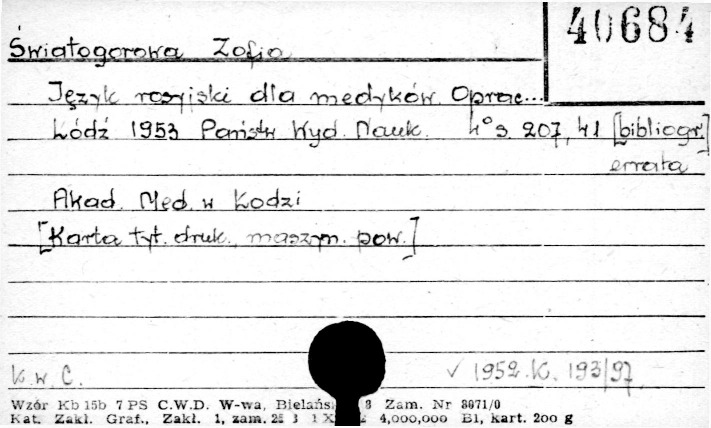 40684
Światogorowa Zofia
Język rosyjski dla medyków. Oprac...
Łódź 1953 Państw. Wyd. Nauk. 4° s. 207, 41 [bibliogr.]
errata
Akad. Med. w Łodzi
[Karta tyt. druk., maszyn. pow.]
K. w C. √ 1952. K. 193/97.
Wzór Kb 15b 7 PS C.W.D. W-wa, Bielańsk 8 Zam. Nr 3071/0
Kat. Zakł. Graf., Zakł. 1, zam. 4,000,000 B1, kart. 200 g